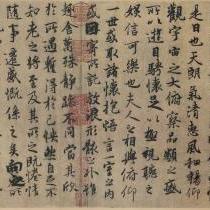 是日也天朗氣清惠風和暢仰
觀宇宙之大俯察品類之盛
所以遊目騁懷足以極視聽之
娛信可樂也夫人之相與俯仰
一世或取諸懷抱悟言一室之內
或因寄所託放浪形骸之外雖
趣舍萬殊靜躁不同當其欣
於所遇蹔得於己怏然自足不
知老之將至及其所之既惓情
隨事遷感慨係之矣向之